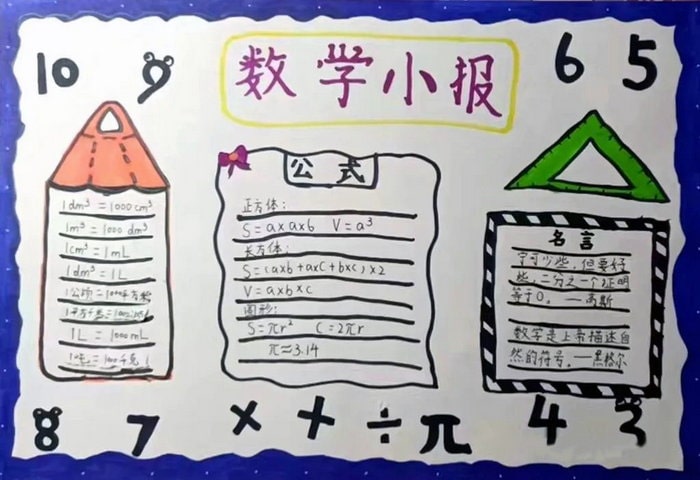 数学小报
10
9
6
5
1dm³ = 1000cm³
1m³ = 1000 dm³
1cm³ = 1mL
1dm³ = 1L
1公顷=10000平方米
1L = 1000mL
1吨=1000千克
公式
正方体:
S=a×a×6 V=a³
长方体:
S=(a×b+a×c+b×c)×2
V=a×b×c
圆形:
S=πr² C=2πr
π≈3.14
名言
宁可少些,但要好
些,二分之一个证明
等于0。—高斯
数学是上帝描述自
然的符号。—黑格尔
8
7
×
+
÷
π
4
3